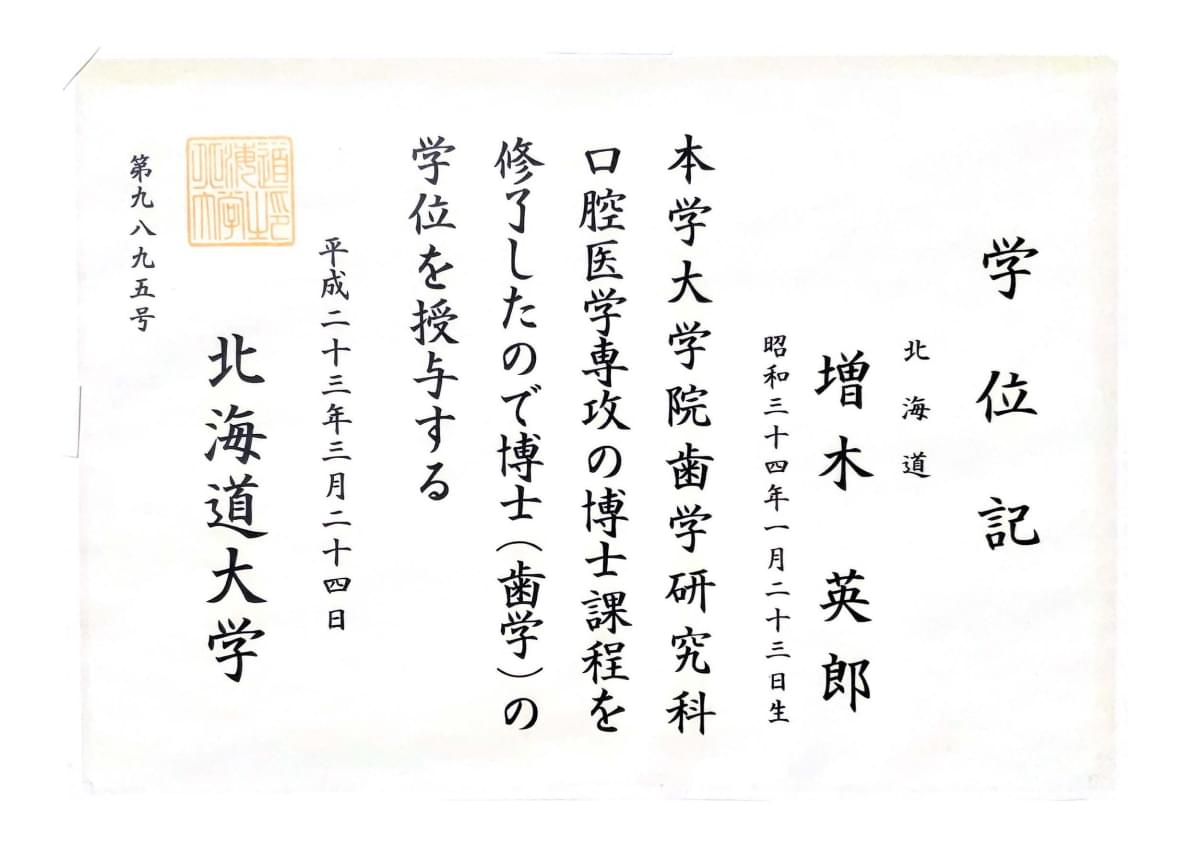 学位記
北海道
増木 英郎
昭和三十四年一月二十三日生
本学大学院歯学研究科
口腔医学専攻の博士課程を
修了したので博士(歯学)の
学位を授与する
平成二十三年三月二十四日
北海道大学
第九八九五号